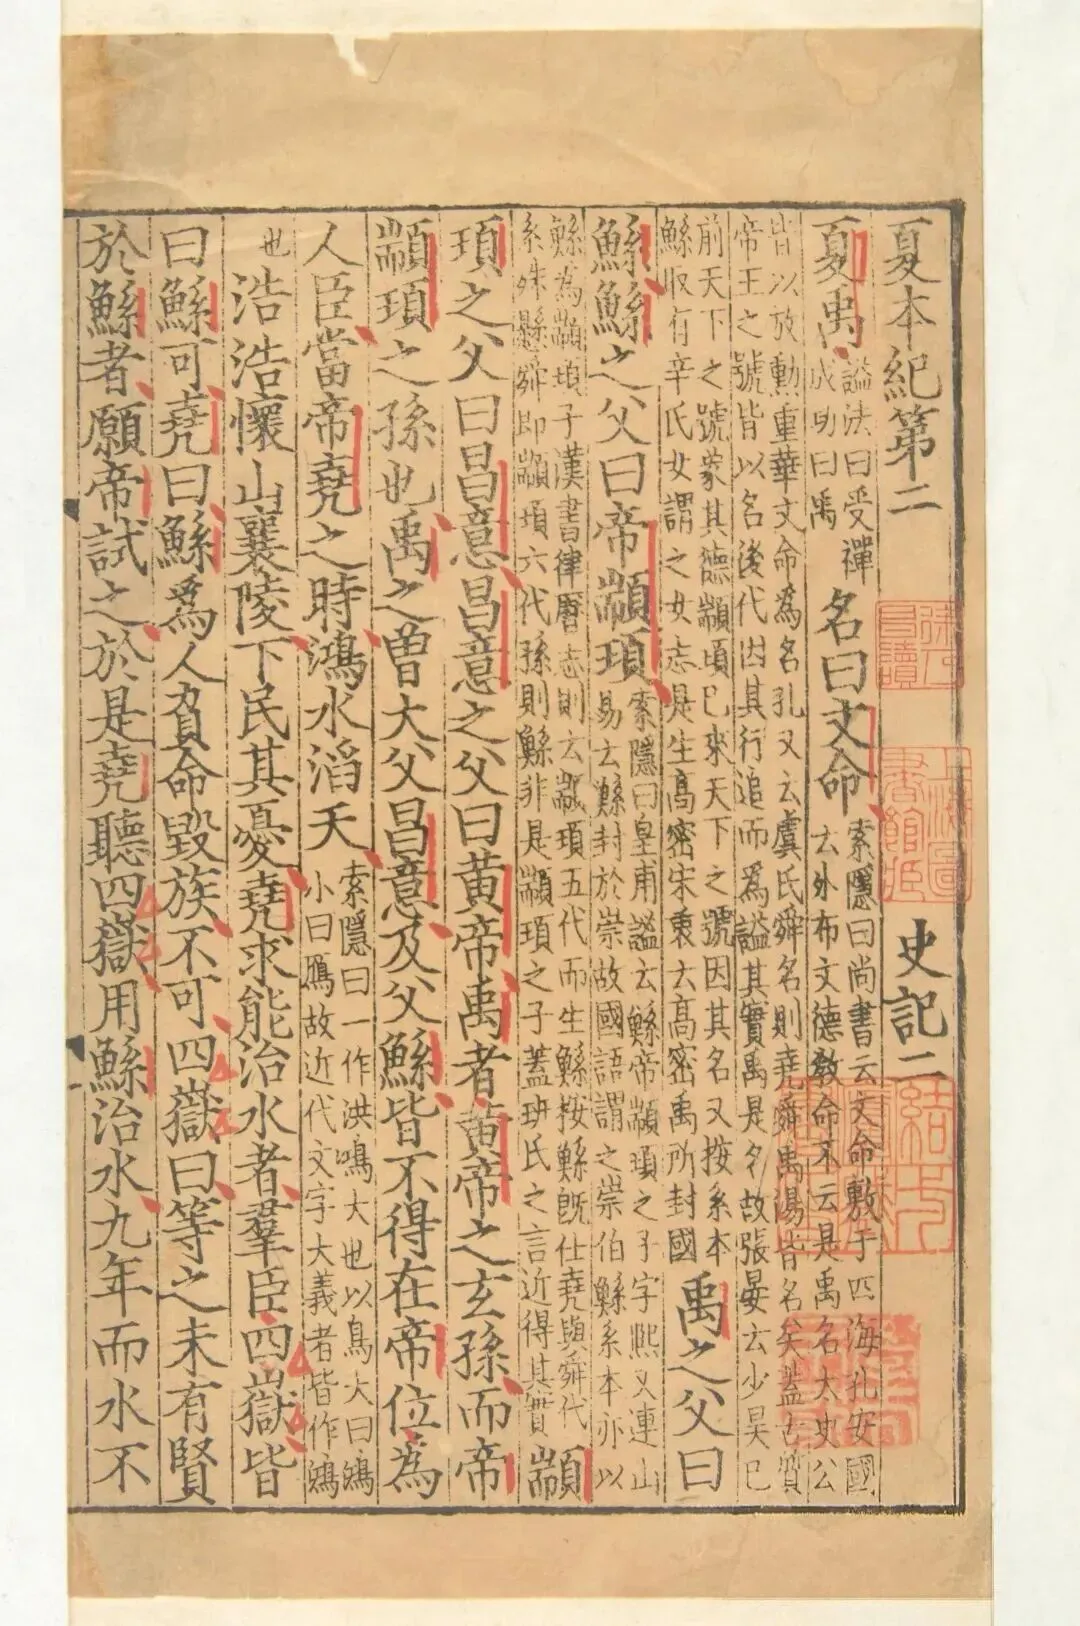 夏本紀第二 史記二
夏禹 謚法曰受禪成功曰禹 名曰文命 索隱曰尚書云文命敷于四海孔安國云外布文德教命不云是禹名太史公
皆以放勳重華文命為名孔又云虞氏舜名則堯舜禹湯皆名矣蓋古質帝王之號皆以名後代因其行追而為謚其實禹是名故張晏云少昊已
前天下之號象其德顓頊已來天下之號因其名又按系本鯀取有辛氏女謂之女志是生高密宋衷云高密禹所封國 禹之父曰
鯀鯀之父曰帝顓頊 索隱曰皇甫謐云鯀帝顓頊之子字熙又連山易云鯀封於崇故國語謂之崇伯鯀系本亦以
鯀為顓頊子漢書律曆志則云顓頊五代而生鯀按鯀既仕堯與舜代系殊懸舜即顓頊六代孫則鯀非是顓頊之子蓋班氏之言近得其實 顓
頊之父曰昌意昌意之父曰黃帝禹者黃帝之玄孫而帝
顓頊之孫也禹之曾大父昌意及父鯀皆不得在帝位為
人臣當帝堯之時鴻水滔天 索隱曰一作洪鴻大也以鳥大曰鴻小曰鴈故近代文字大義者皆作鴻
也 浩浩懷山襄陵下民其憂堯求能治水者羣臣四嶽皆
曰鯀可堯曰鯀爲人負命毀族不可四嶽曰等之未有賢
於鯀者願帝試之於是堯聽四嶽用鯀治水九年而水不
上海圖書館藏